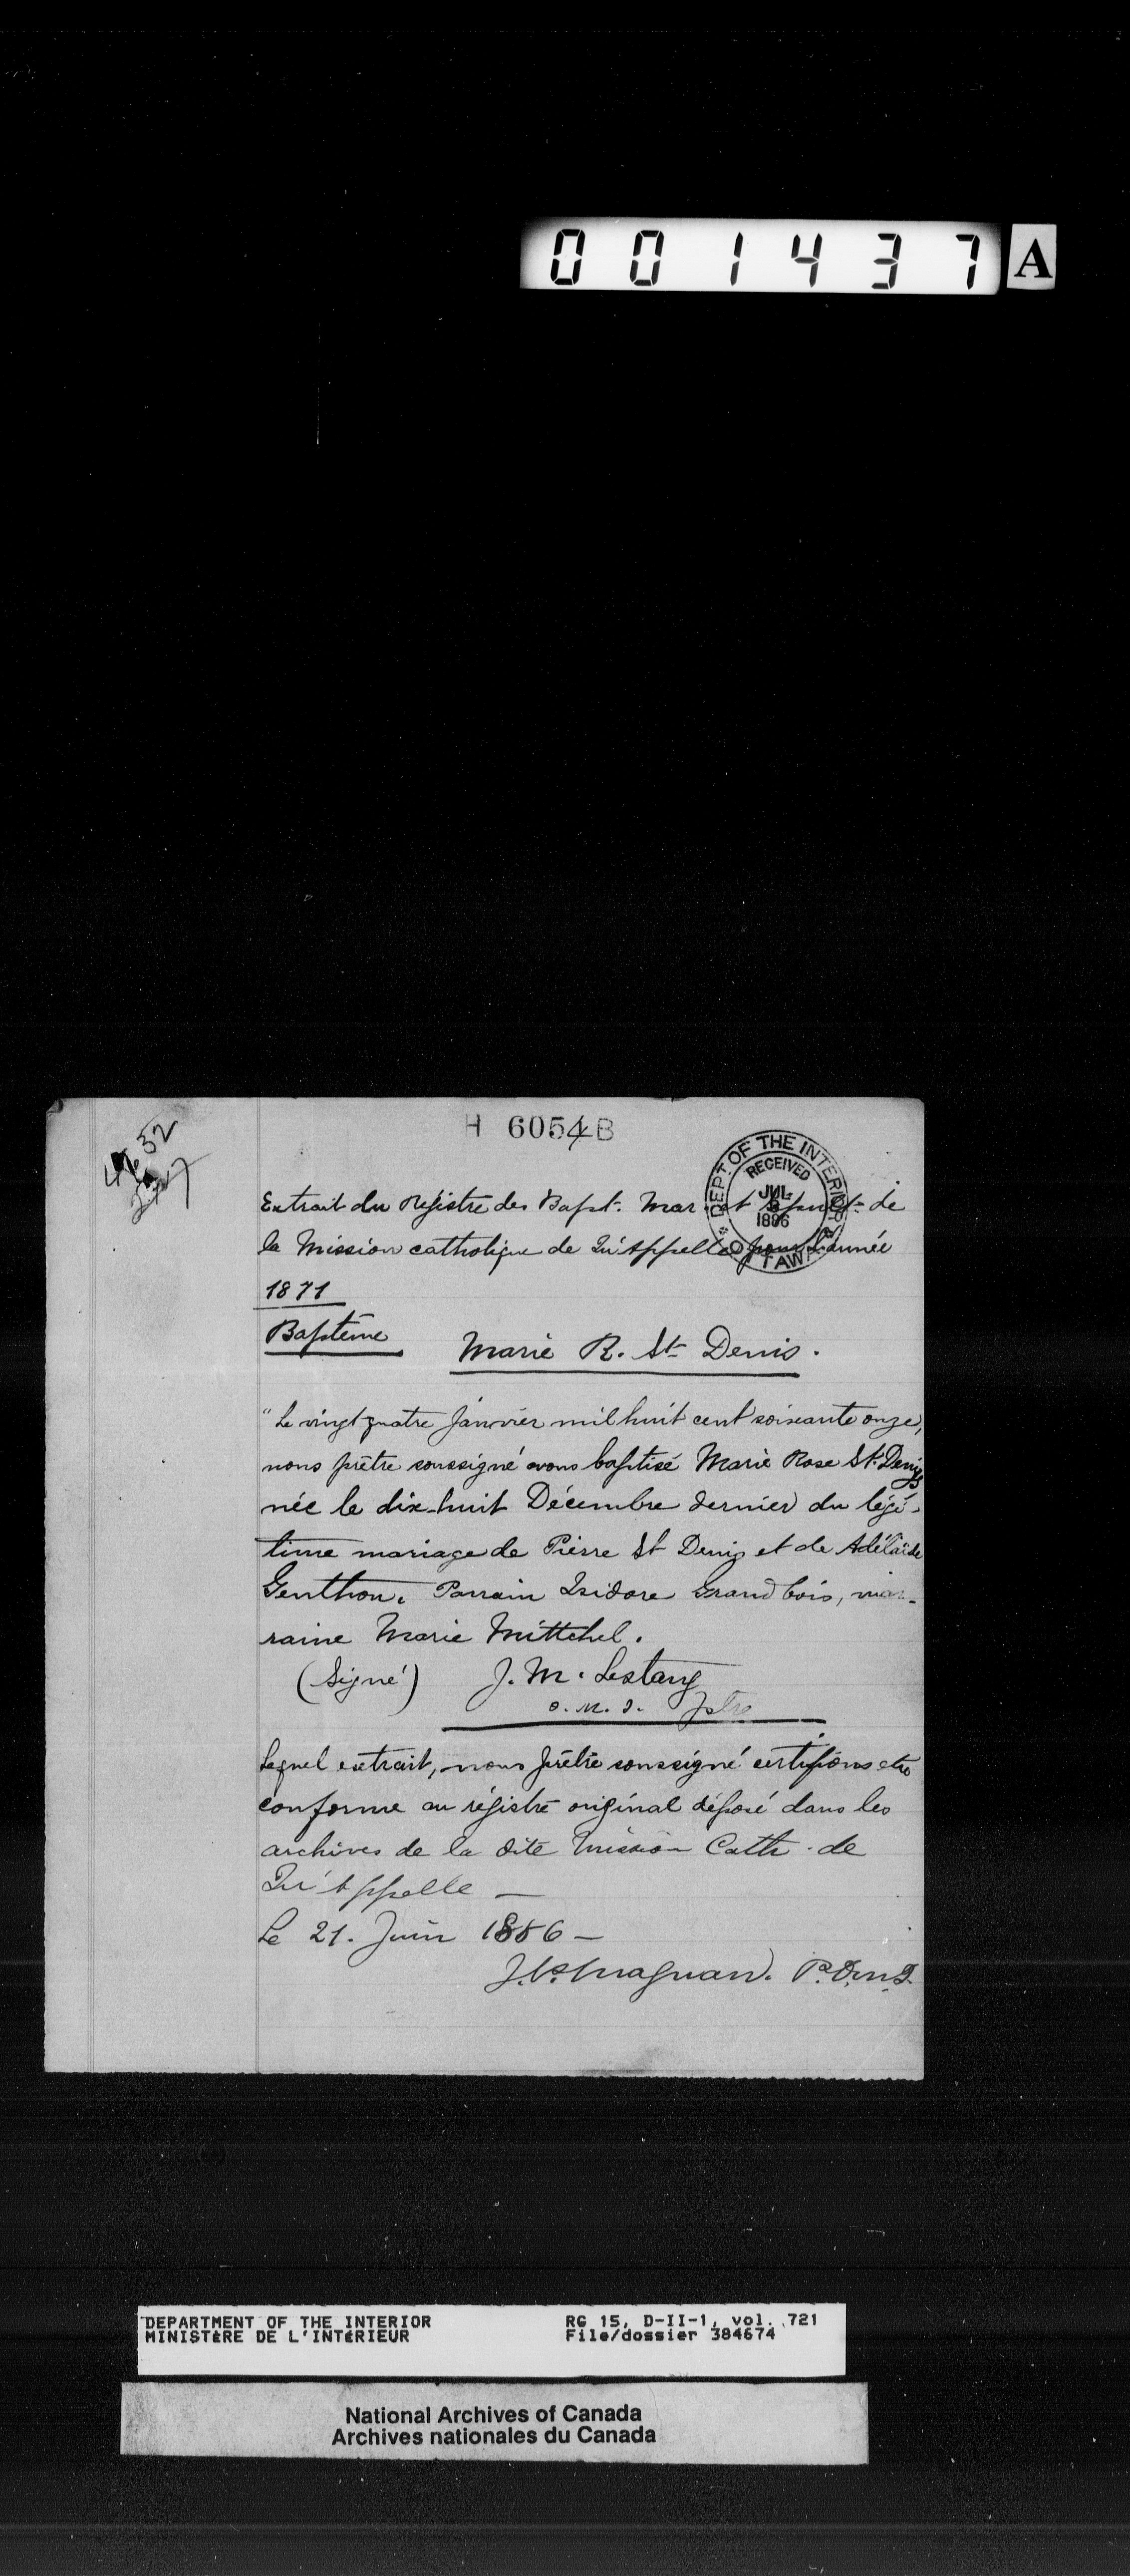 001437 A
H 6054 B
DEPT. OF THE INTERIOR
RECEIVED
JUL
1886
OTTAWA
Extrait du Régistre des Bapt. Mar. et Sépult. de
la Mission catholique de Qu'Appelle pour l'année
1871
Baptême
Marie R. St Denis.
"Le vingt quatre Janvier mil huit cent soixante onze,
nous prêtre soussigné avons baptisé Marie Rose St. Denis
née le dix-huit Décembre dernier du légi-
time mariage de Pierre St Denis et de Adélaïde
Genthon. Parrain Isidore Grandbois, mar-
raine Marie Mittchel.
(Signé) J. M. Lestang
o. m. i. ptre
Lequel extrait, nous prêtre soussigné certifions etre
conforme au régistre original déposé dans les
archives de la dite Mission Cath. de
Qu'Appelle —
Le 21. Juin 1886 —
J. Magnan. P. O.m.I.
DEPARTMENT OF THE INTERIOR
MINISTÈRE DE L'INTÉRIEUR
RG 15, D-II-1, vol. 721
File/dossier 384674
National Archives of Canada
Archives nationales du Canada